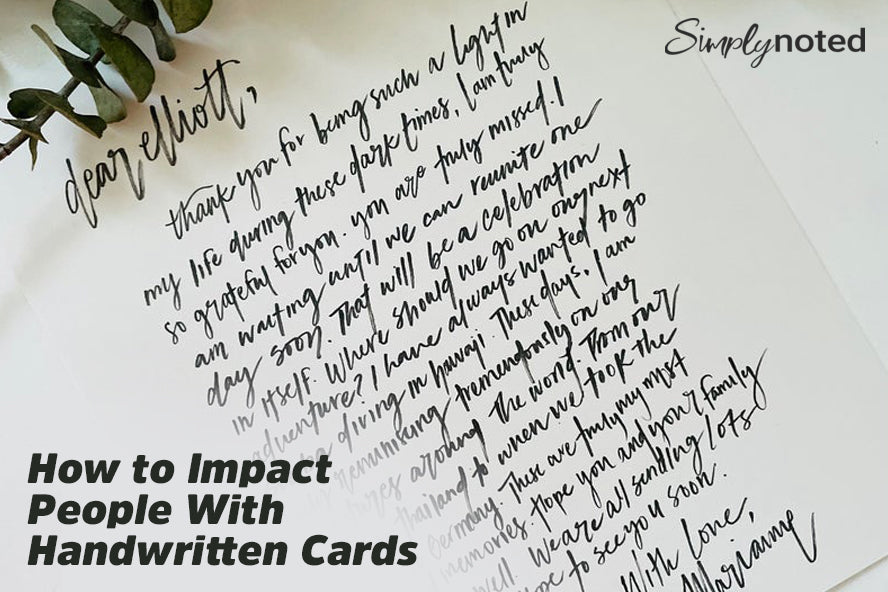 Simplynoted
dear elliott,
thank you for being such a light in
my life during these dark times, I am truly
so grateful for you. you are truly missed. I
am waiting until we can reunite one
day soon. That will be a celebration
in itself. Where should we go on our next
adventure? I have always wanted to go
diving in hawaii. These days, I am
reminiscing tremendously on our
around the world. From our
thailand to when we took the
Germany. These are truly my most
memories. Hope you and your family
well. We are all sending lots
to see you soon.
With Love,
Marianne
How to Impact
People With
Handwritten Cards